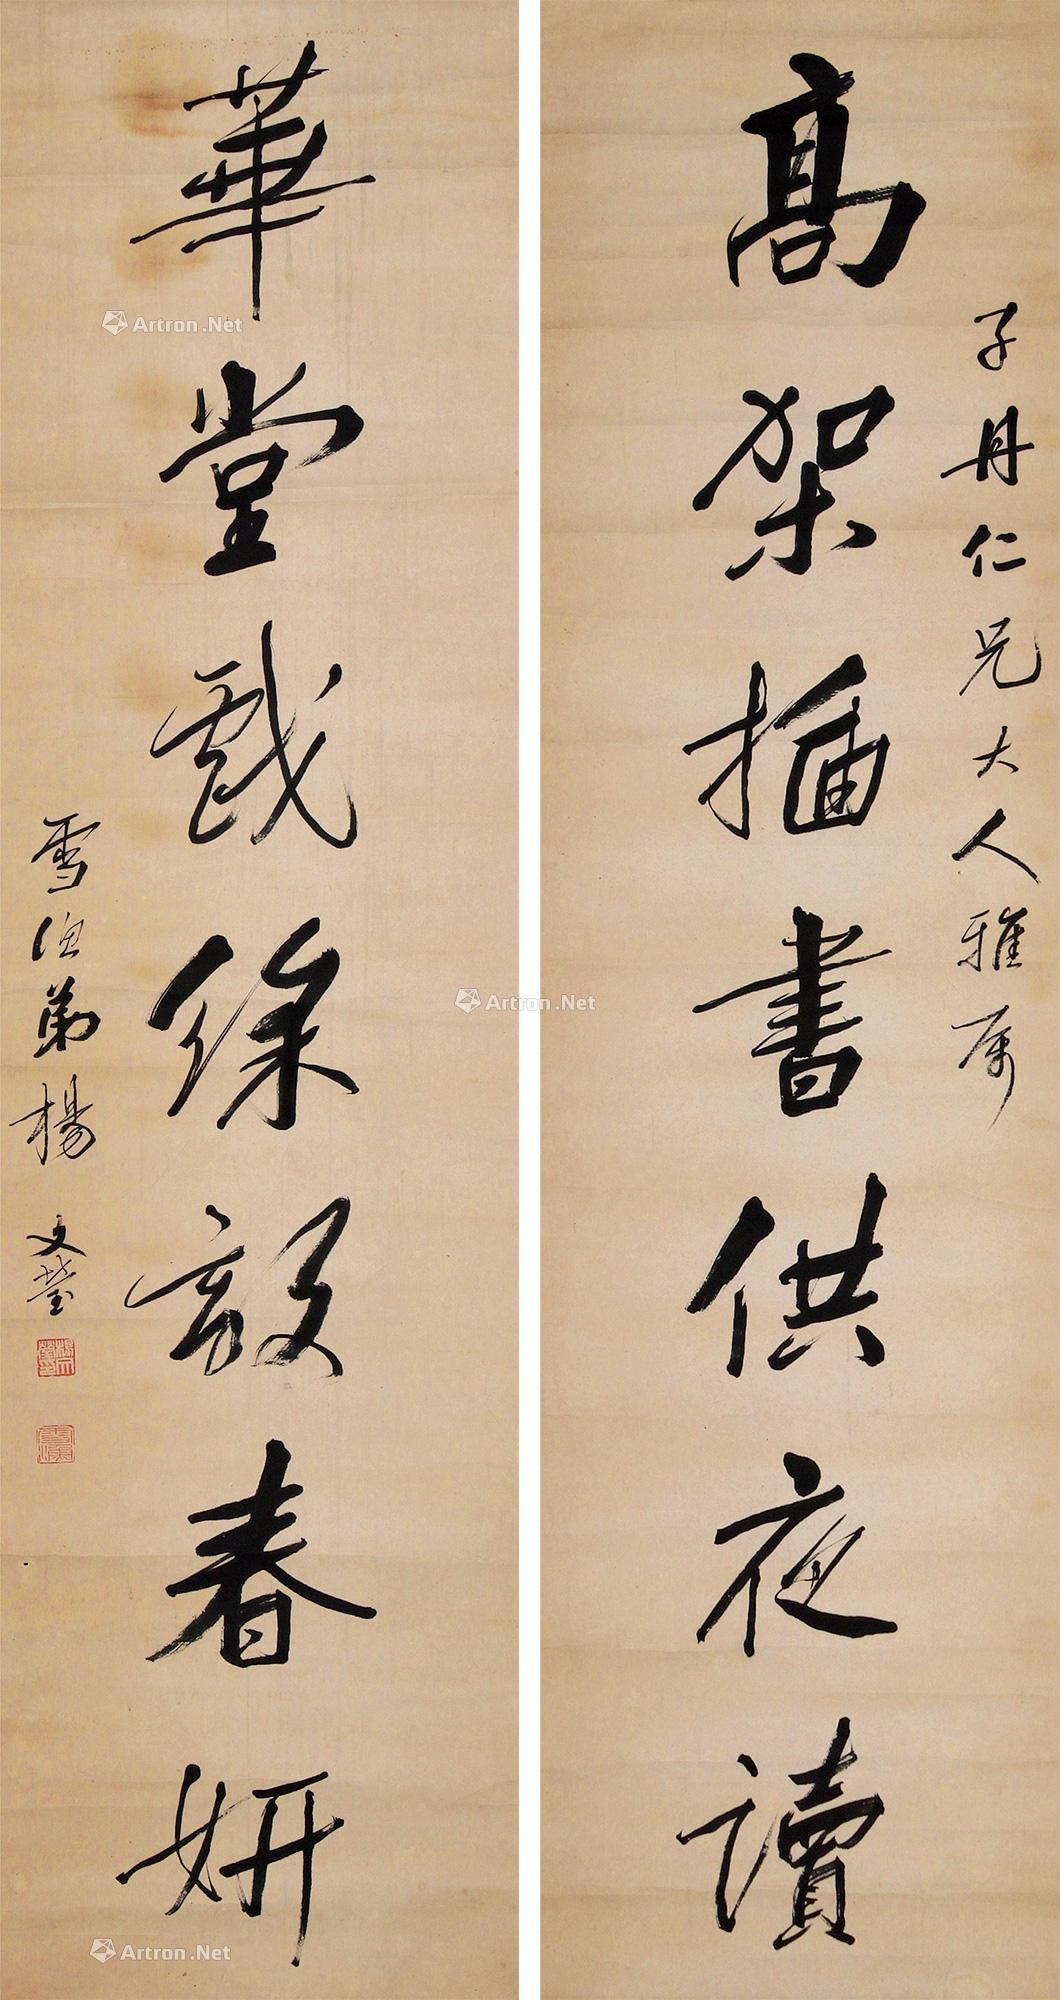 高架插書供夜讀
子丹仁兄大人雅屬
華堂戲綵效春妍
雪漁弟楊文瑩
楊文瑩印
雪漁
Artron.Net
Artron.Net
Artron.Net